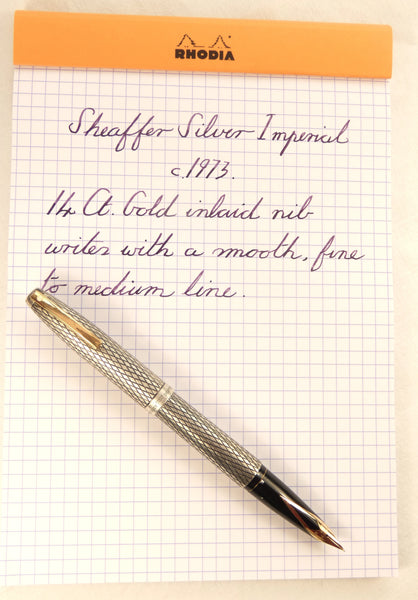 RHODIA
Sheaffer Silver Imperial
c.1973.
14 Ct. Gold inlaid nib
writes with a smooth, fine
to medium line.